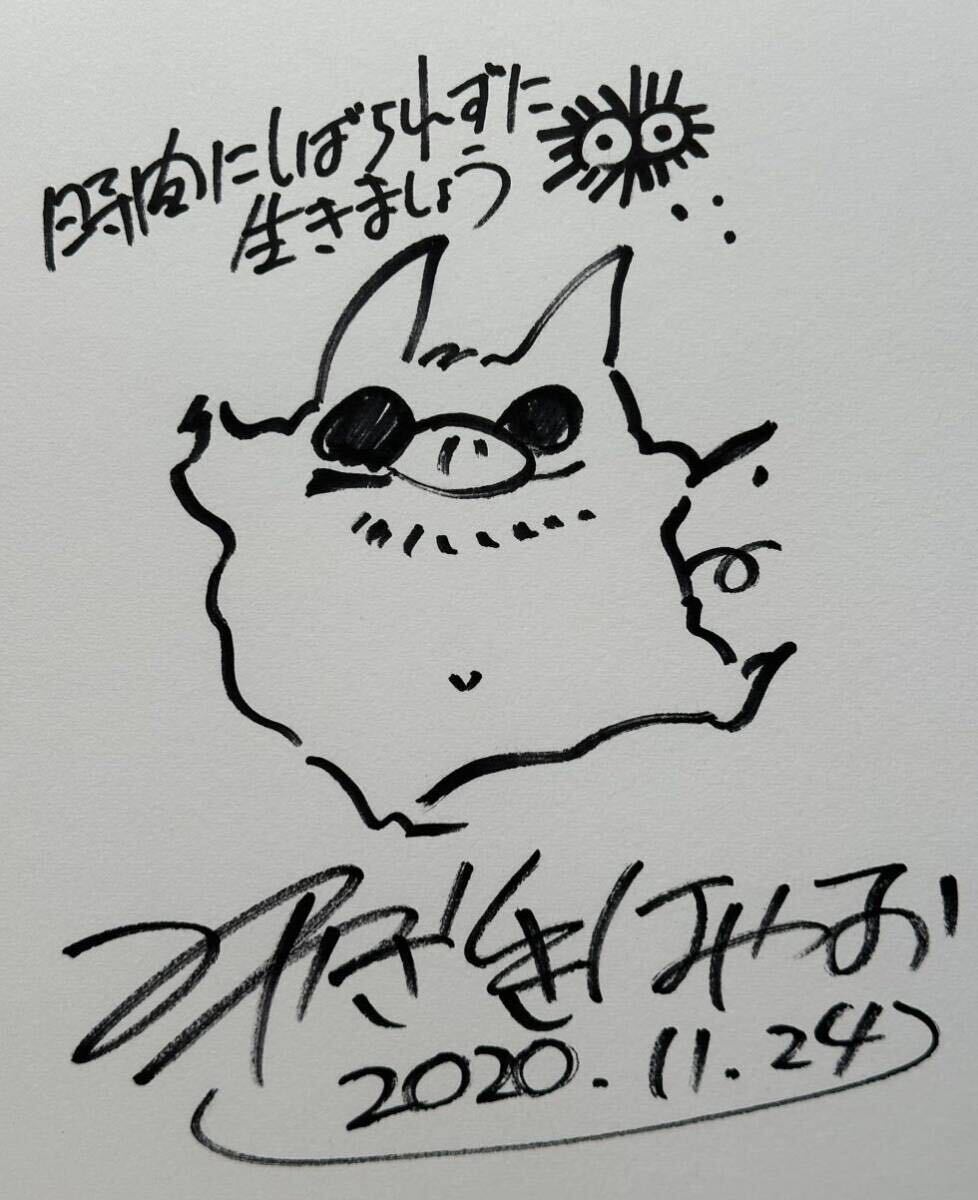 時間にしばられずに
生きましょう
みやざきはやお
2020.11.24